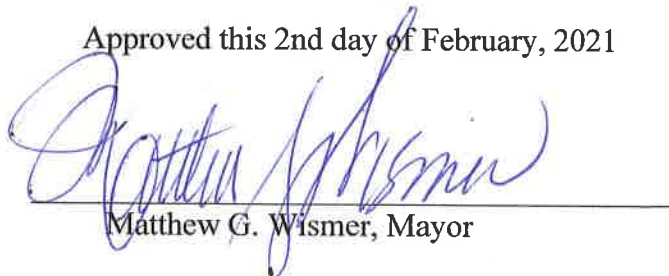 Approved this 2nd day of February, 2021
Matthew G. Wismer
Matthew G. Wismer, Mayor